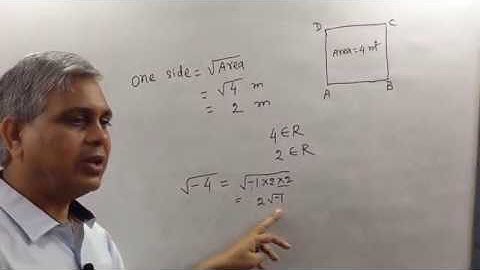 D C
Area = 4 m²
A B
One side = √Area
= √4 m
= 2 m
4 ∈ R
2 ∈ R
√-4 = √-1×2×2
= 2√-1